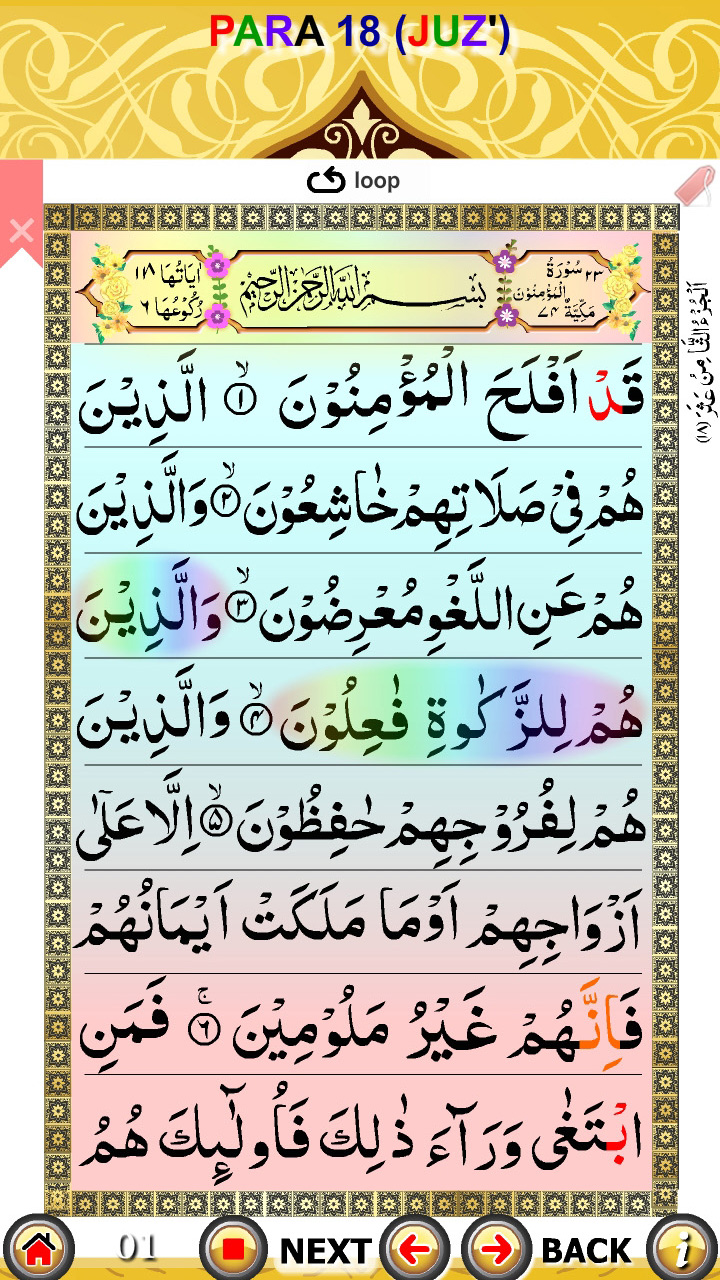 PARA 18 (JUZ')
loop
اٰيَاتُهَا ١١٨
رُكُوْعُهَا ٦
بِسْمِ اللّٰهِ الرَّحْمٰنِ الرَّحِيْمِ
٢٣ سُوْرَةُ
الْمُؤْمِنُوْنَ
مَكِّيَّةٌ ٧٤
اَلْجُزْءُ الثَّامِنُ عَشَرَ (١٨)
قَدْ اَفْلَحَ الْمُؤْمِنُوْنَ ۙ﴿۱﴾ الَّذِيْنَ
هُمْ فِيْ صَلَاتِهِمْ خَاشِعُوْنَ ۙ﴿۲﴾ وَالَّذِيْنَ
هُمْ عَنِ اللَّغْوِ مُعْرِضُوْنَ ۙ﴿۳﴾ وَالَّذِيْنَ
هُمْ لِلزَّكٰوةِ فٰعِلُوْنَ ۙ﴿۴﴾ وَالَّذِيْنَ
هُمْ لِفُرُوْجِهِمْ حٰفِظُوْنَ ۙ﴿۵﴾ اِلَّا عَلٰٓى
اَزْوَاجِهِمْ اَوْ مَا مَلَكَتْ اَيْمَانُهُمْ
فَاِنَّهُمْ غَيْرُ مَلُوْمِيْنَ ۚ﴿۶﴾ فَمَنِ
ابْتَغٰى وَرَآءَ ذٰلِكَ فَاُولٰٓئِكَ هُمُ
01
NEXT
BACK
i